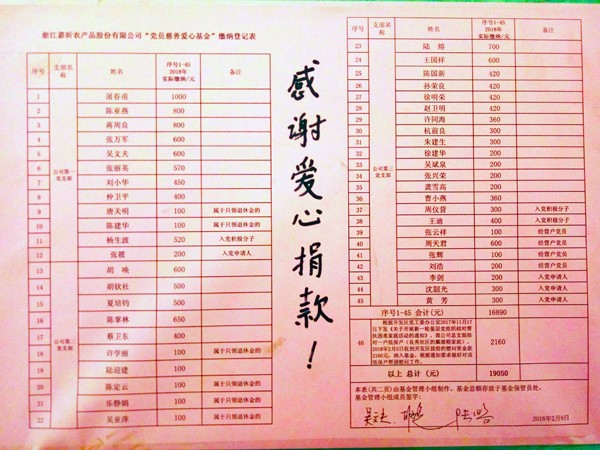 浙江嘉昕农产品股份有限公司“党员慈善爱心基金”缴纳登记表
序号 支部名称 姓名 序号1-45 2018年 实际缴纳/元 备注
公司第一党支部
1 屠春甫 1000
2 陈亚燕 800
3 蒋周良 800
4 张万军 600
5 吴文夫 600
6 张丽英 570
7 刘小华 450
8 仲卫平 400
9 唐关明 100 属于只领退休金的
10 陈建华 100 属于只领退休金的
11 杨生波 520 入党积极分子
12 张 200 入党申请人
13 胡 600
14 胡钦社 500
15 夏培钧 500
16 陈掌林 650
17 蔡卫东 400
18 许学丽 100 属于只领退休金的
19 陆迎建 100
20 陈定云 100 属于只领退休金的
21 乐静娟 100 属于只领退休金的
22 吴亚萍 100 属于只领退休金的
感谢爱心捐款！
序号 支部名称 姓名 序号1-45 2018年 实际缴纳/元 备注
公司第三党支部
23 陆 700
24 王国祥 600
25 陈国新 420
26 孙荣良 420
27 徐明荣 420
28 赵卫明 420
29 许同海 360
30 杭前良 300
31 朱建生 300
32 徐建华 200
33 吴斌泉 200
34 张兴荣 200
35 龚雪高 200
36 曹小燕 360
37 周仪营 300 入党积极分子
38 王迪 400 入党积极分子
39 张云祥 100 经营户党员
40 周天君 600 经营户党员
41 张辉 100 经营户党员
42 刘浩 200 经营户党员
43 李剑 200 入党申请人
44 沈韶光 300 入党申请人
45 黄芳 300 入党申请人
序号1-45 合计(元) 16890
46 2160
以上 总计(元) 19050
本表(共二页)由基金管理小组制作。基金总额存放于基金保管员处。
基金管理小组成员签字：
2018年2月9日